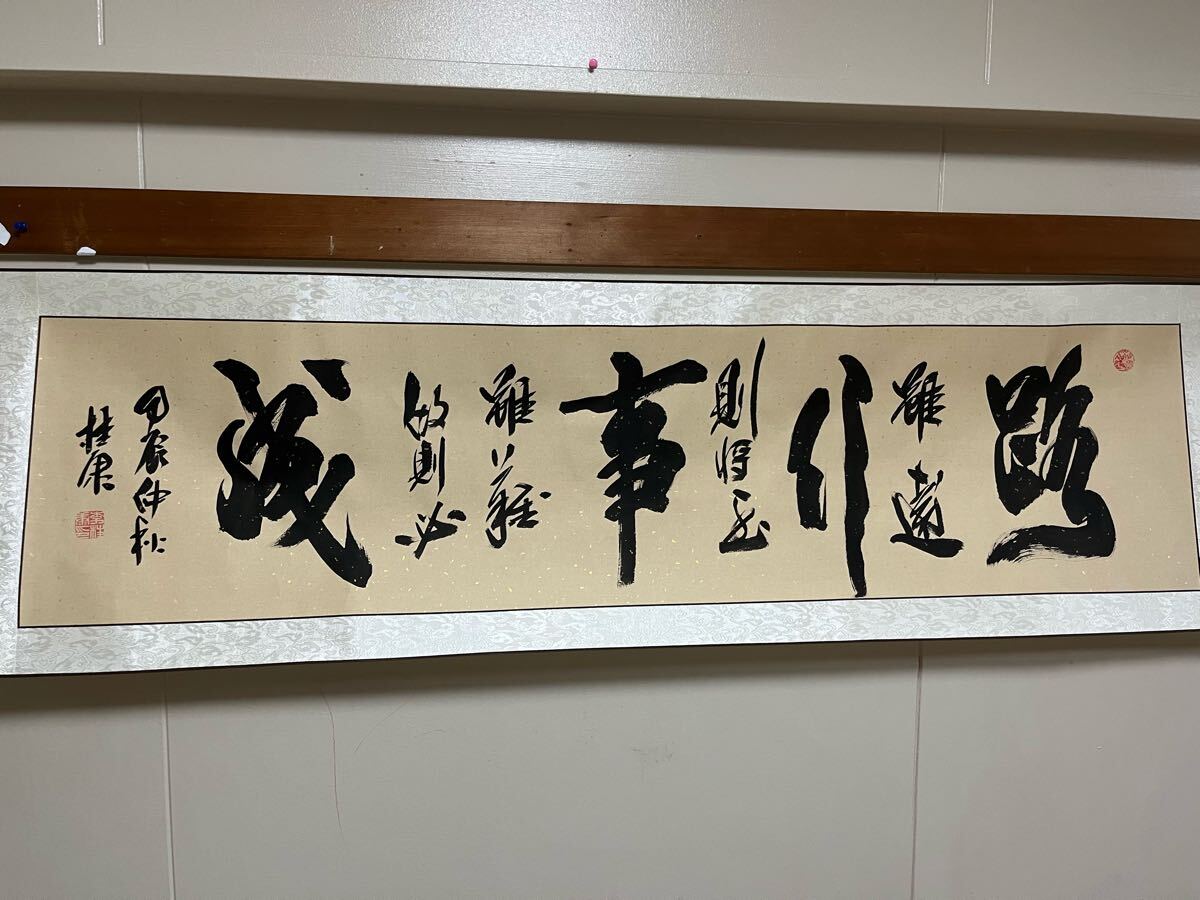 路
雖遠
行
則將至
事
雖難
做則必
成
甲辰仲秋